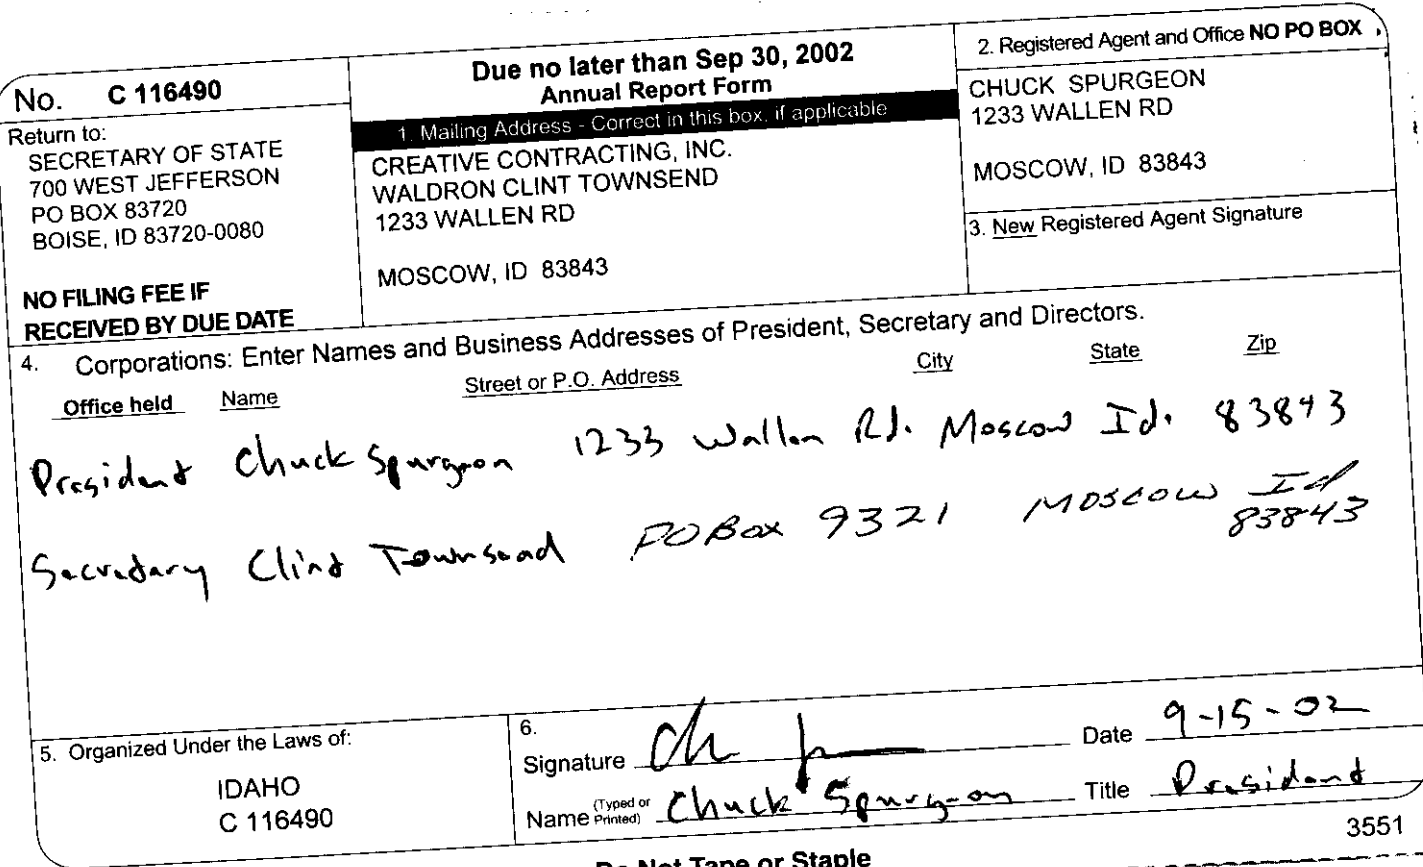 No. C 116490
Return to:
SECRETARY OF STATE
700 WEST JEFFERSON
PO BOX 83720
BOISE, ID 83720-0080
NO FILING FEE IF
RECEIVED BY DUE DATE
Due no later than Sep 30, 2002
Annual Report Form
1. Mailing Address - Correct in this box, if applicable
CREATIVE CONTRACTING, INC.
WALDRON CLINT TOWNSEND
1233 WALLEN RD
MOSCOW, ID 83843
2. Registered Agent and Office NO PO BOX
CHUCK SPURGEON
1233 WALLEN RD
MOSCOW, ID 83843
3. New Registered Agent Signature
4. Corporations: Enter Names and Business Addresses of President, Secretary and Directors.
Office held Name Street or P.O. Address City State Zip
President Chuck Spurgeon 1233 Wallen Rd. Moscow Id. 83843
Secretary Clint Townsend PO Box 9321 Moscow Id
83843
5. Organized Under the Laws of:
IDAHO
C 116490
6.
Signature Date 9-15-02
Name (Typed or Printed) Chuck Spurgeon Title President
3551
Do Not Tape or Staple